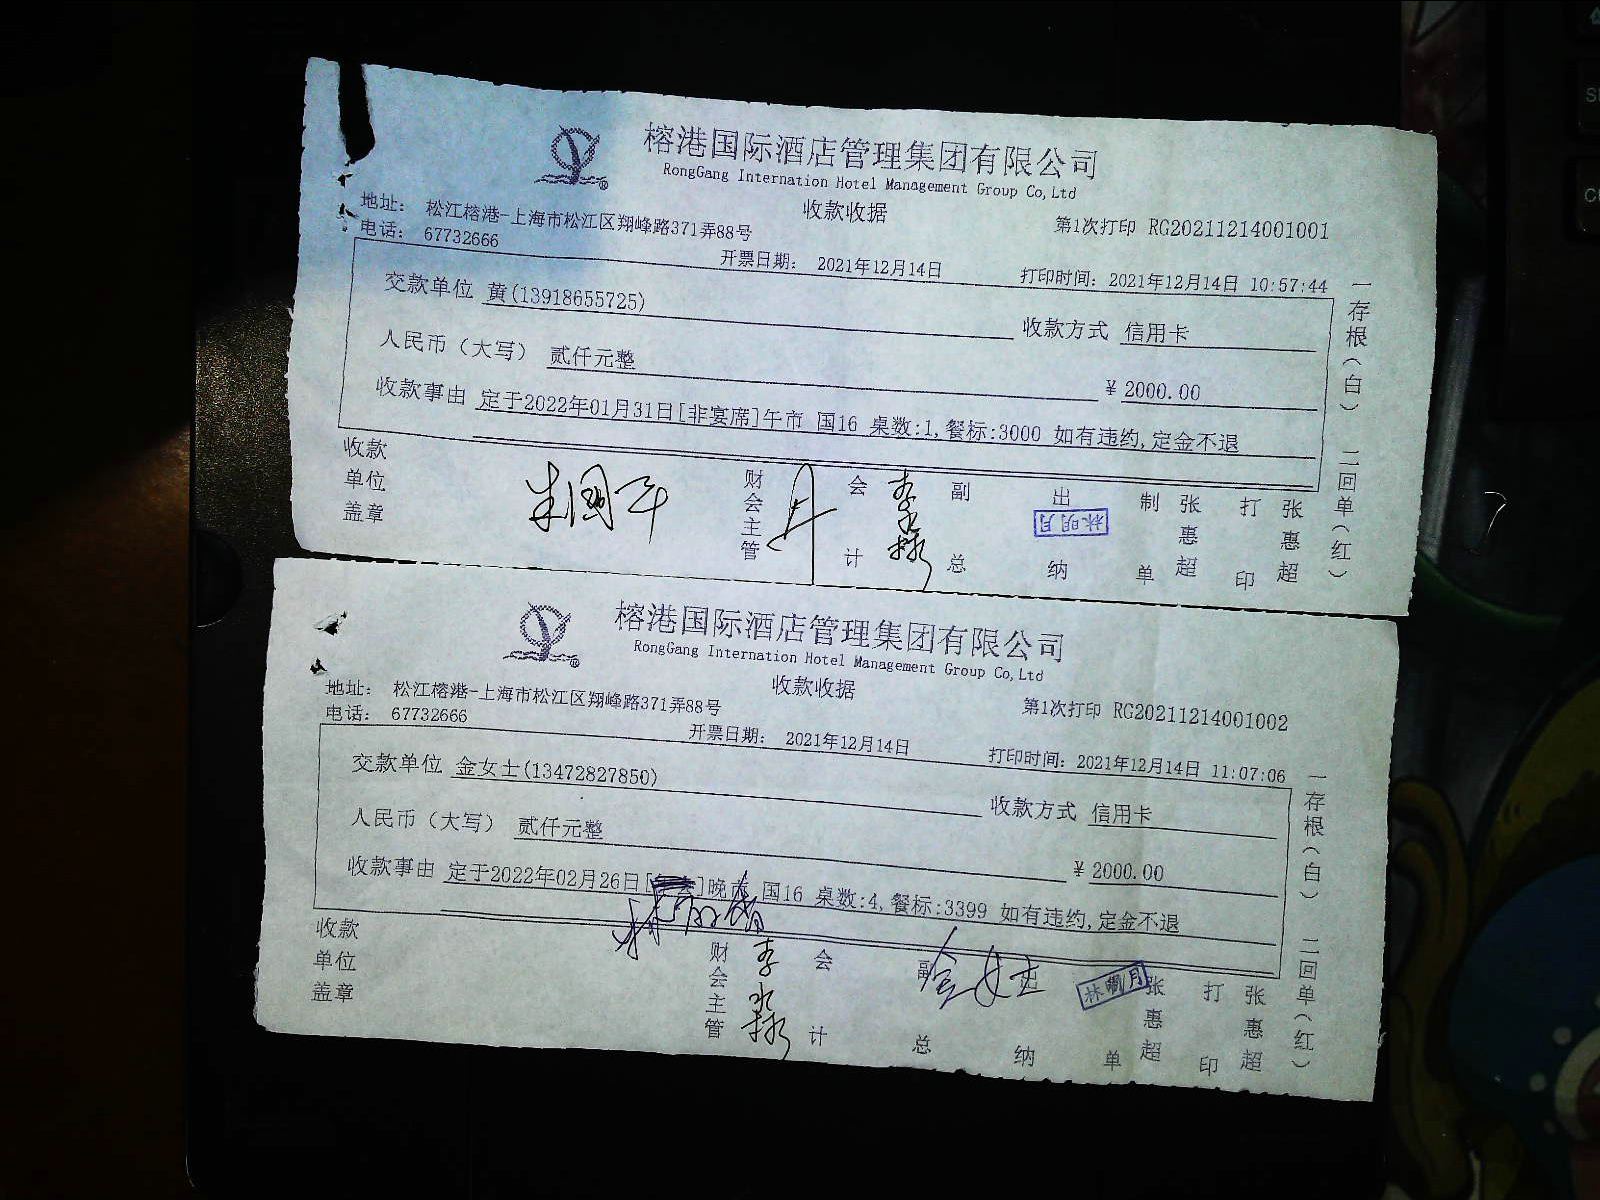 榕港国际酒店管理集团有限公司
RongGang Internation Hotel Management Group Co,Ltd
收款收据
地址: 松江榕港-上海市松江区翔峰路371弄88号
第1次打印 RG20211214001001
电话: 67732666
开票日期: 2021年12月14日
打印时间: 2021年12月14日 10:57:44
交款单位 黄(13918655725)
收款方式 信用卡
人民币（大写） 贰仟元整
¥ 2000.00
收款事由 定于2022年01月31日[非宴席]午市 国16 桌数:1,餐标:3000 如有违约,定金不退
一存根（白） 二回单（红）
收款单位盖章
财会主管
会计
副总
出纳 林明月
制单 张惠超
打印 张惠超
榕港国际酒店管理集团有限公司
RongGang Internation Hotel Management Group Co,Ltd
收款收据
地址: 松江榕港-上海市松江区翔峰路371弄88号
第1次打印 RG20211214001002
电话: 67732666
开票日期: 2021年12月14日
打印时间: 2021年12月14日 11:07:06
交款单位 金女士(13472827850)
收款方式 信用卡
人民币（大写） 贰仟元整
¥ 2000.00
收款事由 定于2022年02月26日[]晚市 国16 桌数:4,餐标:3399 如有违约,定金不退
一存根（白） 二回单（红）
收款单位盖章
财会主管
会计
副总
金女士
纳 林明月
单 张惠超
打印 张惠超